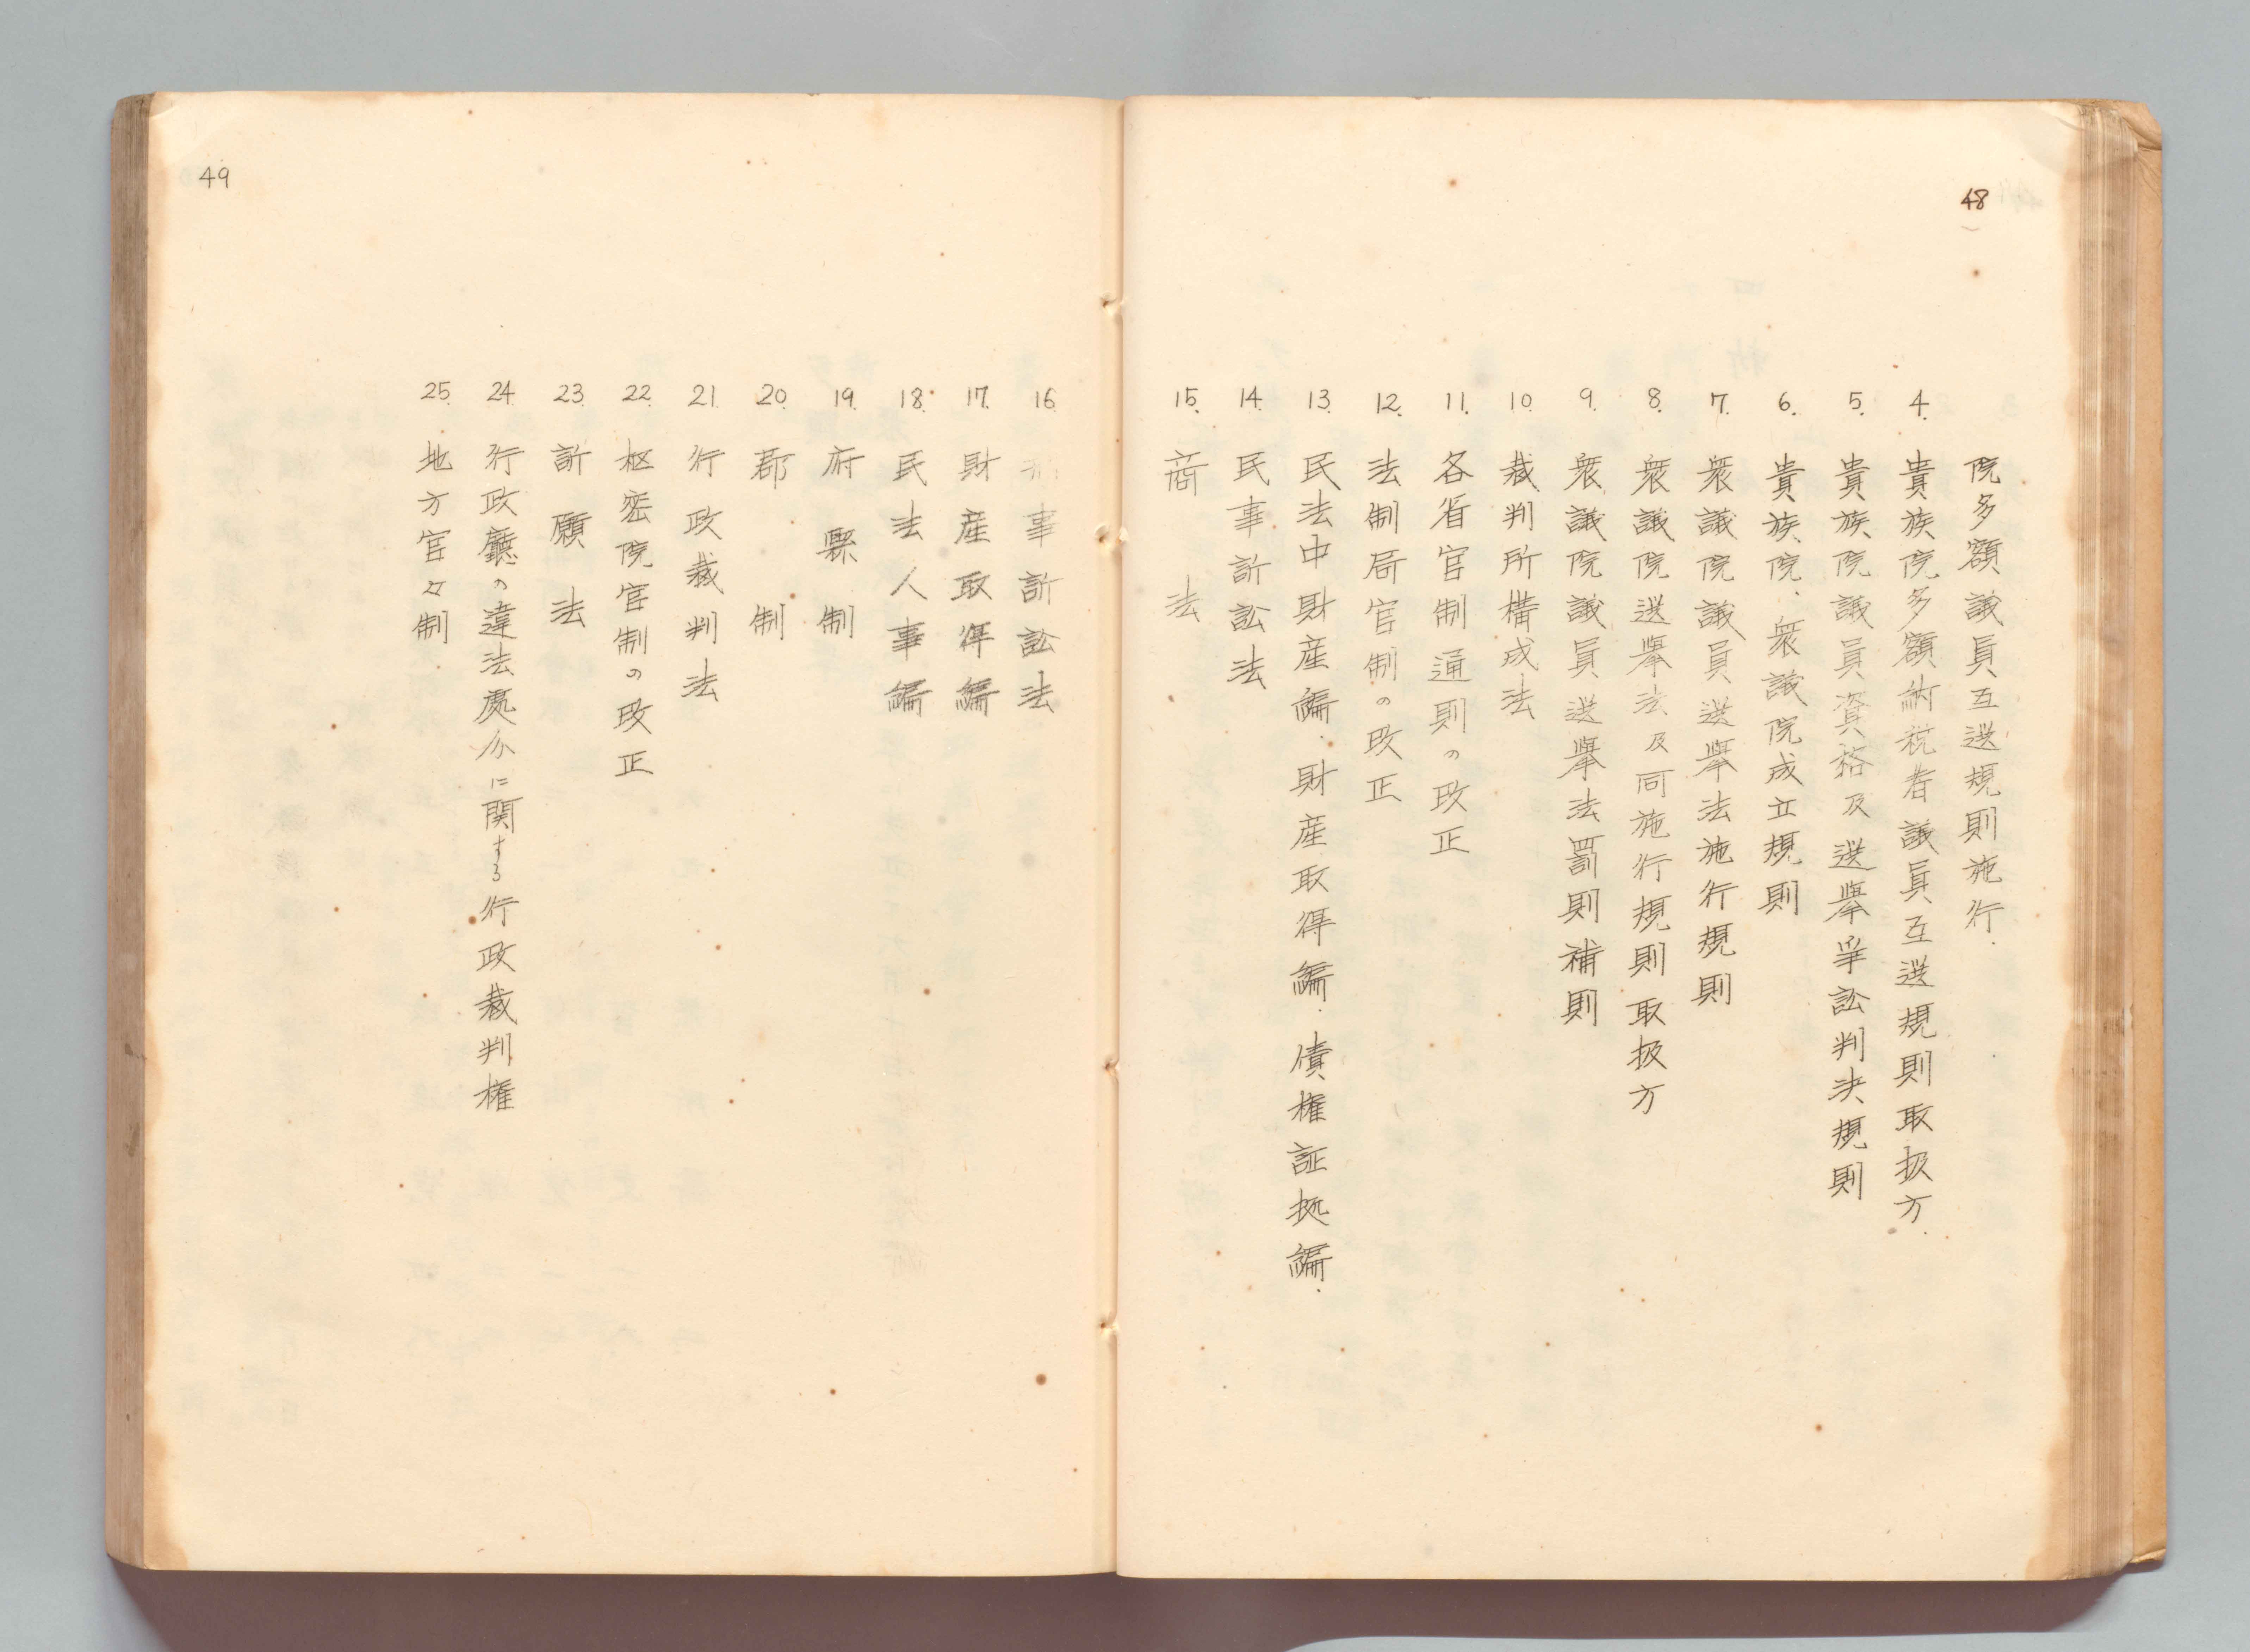 48
院多額議員互選規則施行.
4. 貴族院多額納税者議員互選規則取扱方.
5. 貴族院議員資格及選擧爭訟判決規則
6. 貴族院、衆議院成立規則
7. 衆議院議員選擧法施行規則
8. 衆議院選擧法及同施行規則取扱方
9. 衆議院議員選擧法罰則補則
10. 裁判所構成法
11. 各省官制通則の改正
12. 法制局官制の改正
13. 民法中財産編.財産取得編.債権証拠編.
14. 民事訴訟法
15. 商法
16. 刑事訴訟法
17. 財産取得編
18. 民法人事編
19. 府縣制
20. 郡制
21. 行政裁判法
22. 枢密院官制の改正
23. 訴願法
24. 行政廳の違法處分に関する行政裁判権
25. 地方官々制.
49